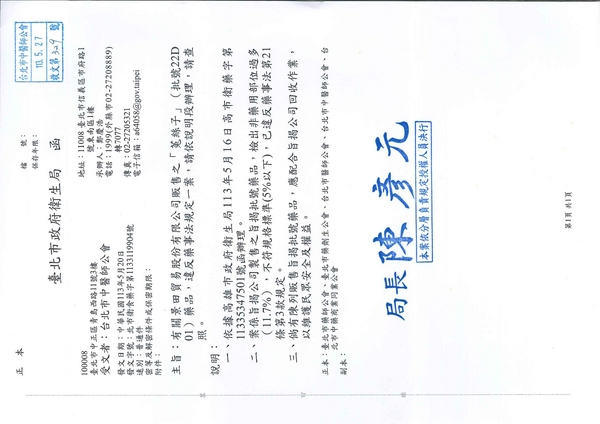 正本
檔　　號：
保存年限：
台北市中醫師公會
113. 5. 27
收文第 329 號
臺北市政府衛生局　函
地址：11008 臺北市信義區市府路1
號東南區1樓
承辦人：鄭慶浩
電話：1999(外縣市02-27208889)
轉7077
傳真：02-27205321
電子信箱：a64058@gov.taipei
100008
臺北市中正區青島西路11號3樓
受文者：台北市中醫師公會
發文日期：中華民國113年5月20日
發文字號：北市衛食藥字第1133119904號
速別：普通件
密等及解密條件或保密期限：
附件：
主旨：有關景田貿易股份有限公司販售之「菟絲子」（批號22D
01）藥品，違反藥事法規定一案，請依說明段辦理，請查
照。
說明：
一、依據高雄市政府衛生局113年5月16日高市衛藥字第
11335347501號函辦理。
二、案係旨揭公司製售之旨揭批號藥品，檢出非藥用部位過多
（11.7%），不符規格標準(5%以下)，已違反藥事法第21
條第3款規定。
三、倘有陳列販售旨揭批號藥品，應配合旨揭公司回收作業，
以維護民眾安全及權益。
正本：臺北市藥師公會、臺北市藥劑生公會、台北市中醫師公會、台
北市中藥商業同業公會
副本：
局長 陳彥元
本案依分層負責規定授權人員決行
第1頁 共1頁